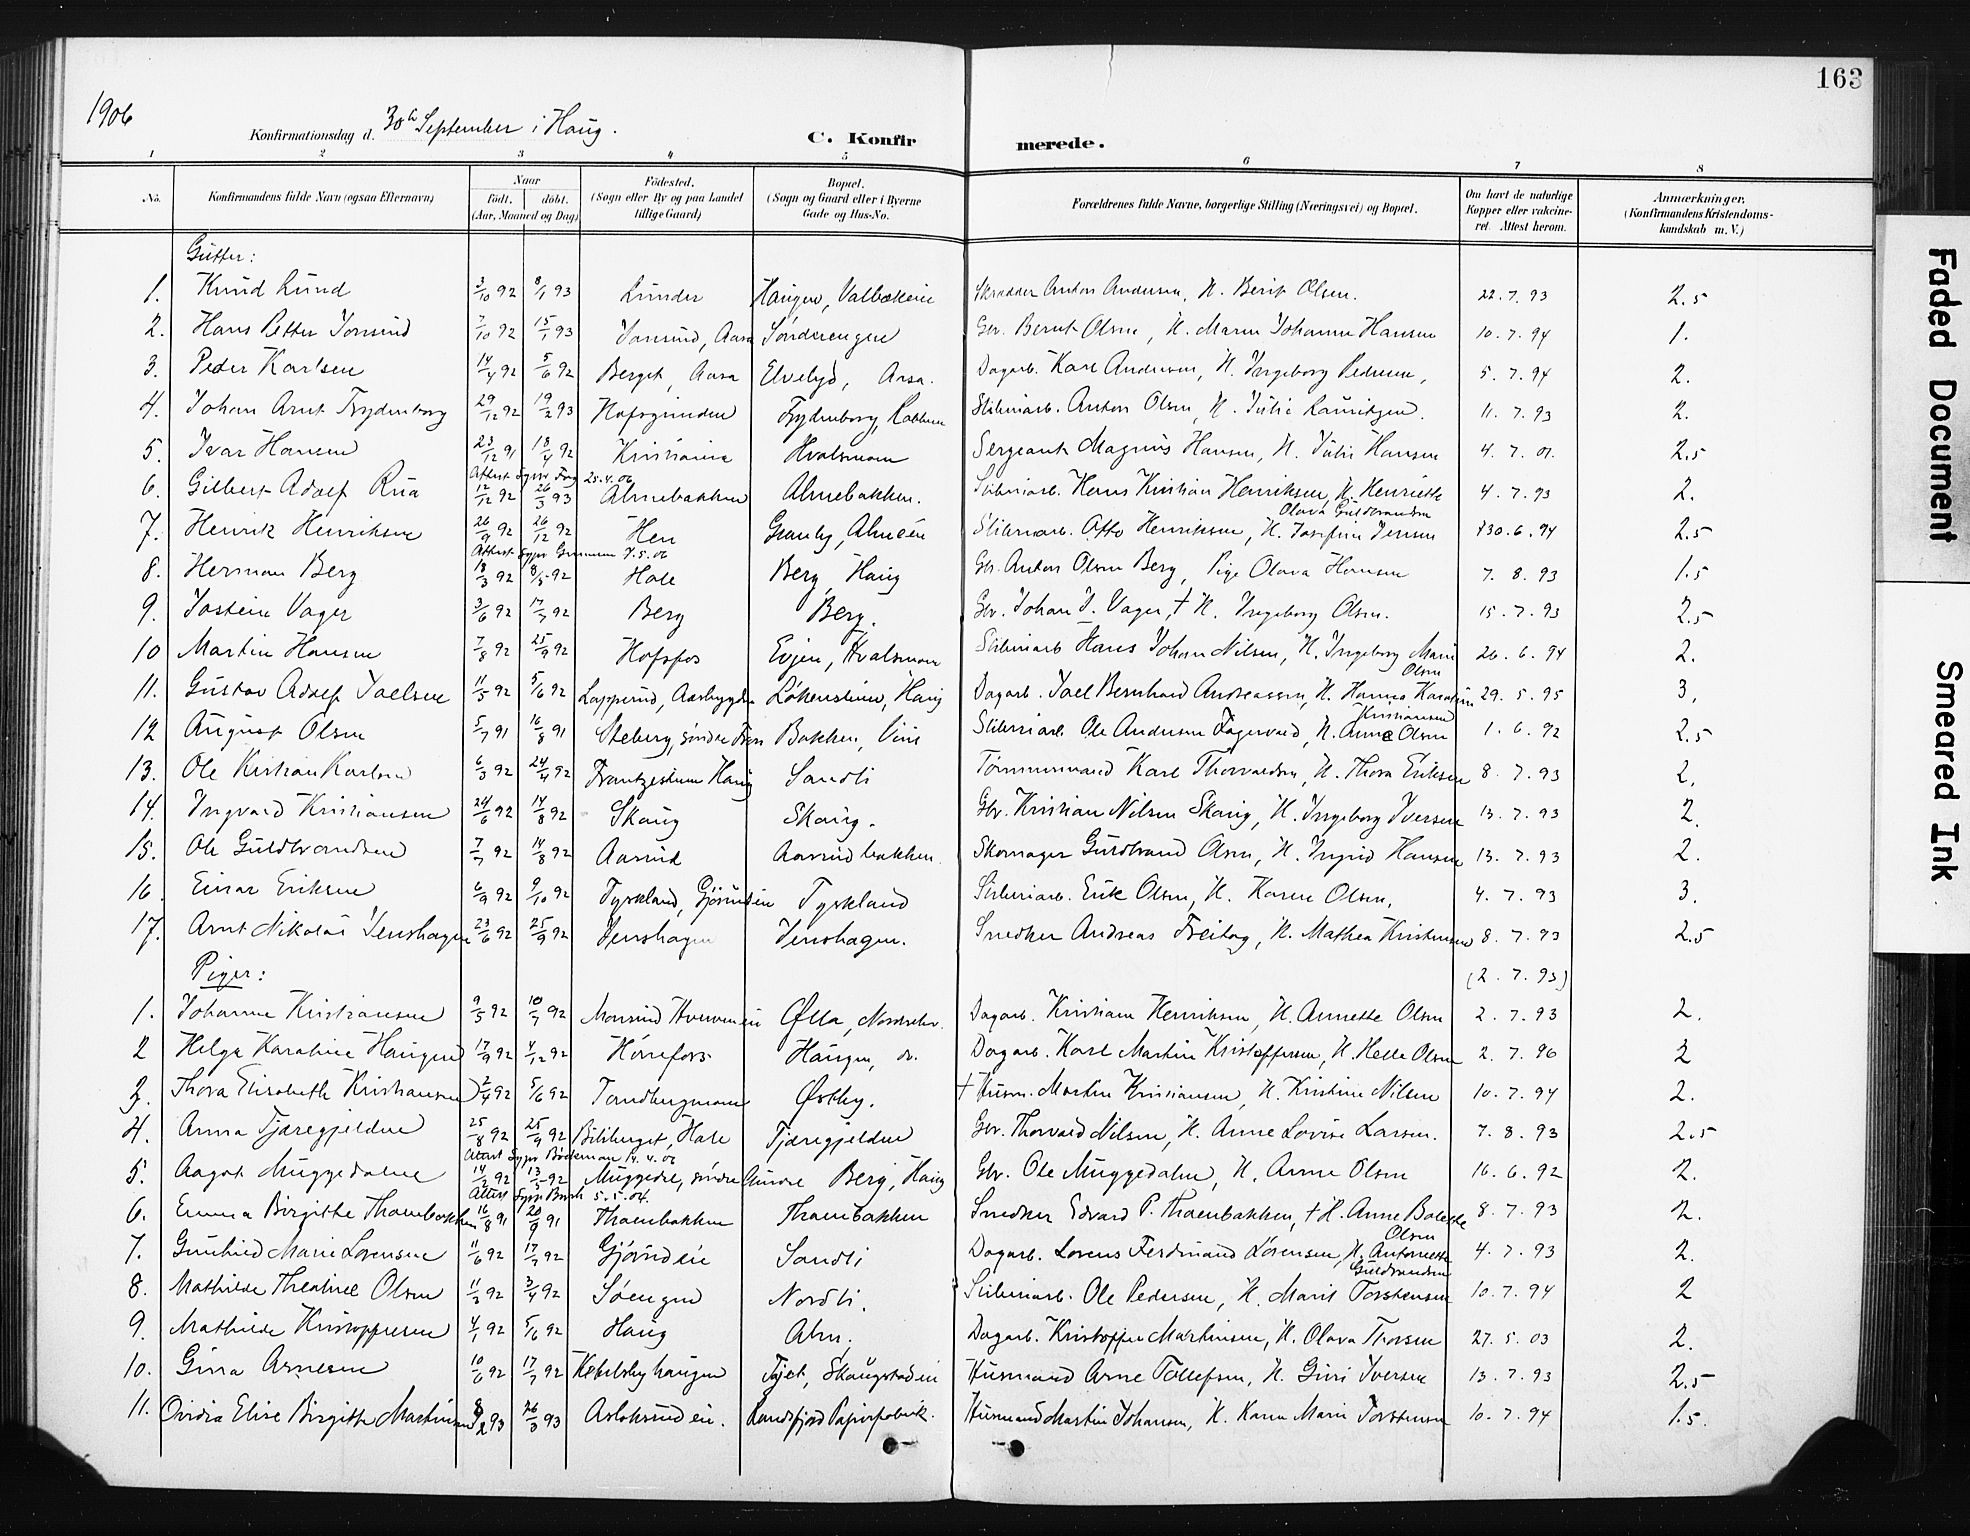 163
1906
Konfirmationsdag d. 30te September i Haug.
C. Konfirmerede.
1 2 3 4 5 6 7 8
No. Konfirmandens fulde Navn (ogsaa Efternavn) Naar født. døbt. (Aar, Maaned og Dag) Fødested. (Sogn eller By og paa Landet tillige Gaard) Bopæl. (Sogn og Gaard eller i Byerne Gade og Hus-No. Forældrenes fulde Navne, borgerlige Stilling (Næringsvei) og Bopæl. Om havt de naturlige Kopper eller vakcineret. Attest herom. Anmærkninger. (Konfirmandens Kristendomskundskab m. V.)
Gutter:
1. Knud Lund 3/10 92 8/1 93 Lunder Haugen, Skrædder Anton Andersen, H. Berit Olsen. 22.7.93 2.5
2. Hans Petter Jonsrud 7/10 92 15/1 93 Jonsrud, Aasa Sønderengen Gbr. Bernt Olsen, H. Maren Johanne Hansen 10.7.94 1.
3. Peder Karlsen 14/4 92 5/6 92 Berget, Aasa Elvelyd, Aasa. Dagarb. Karl Andersen, H. Ingeborg Pedersen, 5.7.94 2.
4. Johan Arnt Frydenborg 29/12 92 19/2 93 Hofsgrinden Frydenborg, Sliberiarb. Anton Olsen, H. Julie Lauritzen. 11.7.93 2.
5. Ivar Hansen 23/12 91 18/4 92 Kristiania Hvalsmoen Sergeant Magnus Hansen, H. Julie Hansen 4.7.01. 2.5
25.4.06
6. Gilbert Adolf Rua 12/12 92 26/3 93 Almebakken Almebakken. Sliberiarb. Hans Kristian Henriksen, H. Henriette Olava Guldbrandsen 4.7.93 2.
7. Henrik Henriksen 26/9 92 26/12 92 Hen Granly, Almeie Sliberiarb. Otto Henriksen, H. Josefine Jensen 30.6.94 2.5
7.5.06
8. Herman Berg 18/3 92 8/5 92 Hole Berg, Haug Gbr. Anton Olsen Berg, Pige Olava Hansen 7.8.93 1.5
9. Jostein Vager 3/6 92 17/7 92 Berg Berg. Gbr. Johan J. Vager, † H. Ingeborg Olsen. 15.7.93 2.5
10 Martin Hansen 7/8 92 25/9 92 Hofsfos Evjen, Hvalsmoen Sliberiarb. Hans Johan Nilsen, H. Ingeborg Marie Olsen 26.6.94 2.
11. Gustav Adolf Joelsen 11/5 92 5/6 92 Lapperud, Aasbygden Løkensteien, Haug Dagarb. Joel Bernhard Andreassen, H. Hanna Karoline Kristiansen 29.5.95 3,
12 August Olsen 5/7 91 16/8 91 Steberg, søndre Bakken, Viul Sliberiarb. Ole Andersen Fagervold, H. Anne Olsen 1.6.92 2.5
13. Ole Kristian Karlsen 6/3 92 24/4 92 Frantzeskuen Haug Sandli Tømmermand Karl Thorvaldsen, H. Thora Eriksen 8.7.93 2,
14. Ingvald Kristiansen 24/6 92 14/8 92 Skaug Skaug. Gbr. Kristian Nilsen Skaug, H. Ingeborg Iversen 13.7.93 2.
15. Ole Guldbrandsen 7/7 92 14/8 92 Aasrud Aasrudbakken. Skomager Guldbrand Olsen, H. Ingrid Hansen 13.7.93 2.
16 Einar Eriksen 6/9 92 9/10 92 Tyskland, Gjørudeie Tyskland Sliberiarb. Erik Olsen, H. Karen Olsen, 4.7.93 3.
17. Arnt Nikolai Jenshagen 23/6 92 25/9 92 Jenshagen Jenshagen. Snedker Andreas Freitag, H. Mathea Kristensen 8.7.93 2.5
Piger: (2.7.93)
1. Johanne Kristiansen 9/5 92 10/7 92 Monsrud Hverveneie Ølla, Norderhov. Dagarb. Kristian Henriksen, H. Annette Olsen 2.7.93 2.
2 Helga Karoline Haugen 17/9 92 4/12 92 Hønefos Haugen, do. Dagarb. Karl Martin Kristoffersen, H. Helle Olsen 2.7.96 2
3. Thora Elisabeth Kristiansen 2/4 92 5/6 92 Tandbergmoen Østby. † Husm. Martin Kristiansen, H. Kristine Nilsen 10.7.94 2.
4. Anna Tjæregjelden 25/8 92 25/9 92 Biliberget, Hole Tjæregjelden Gbr. Thorvald Nilsen, H. Anne Lovise Larsen. 7.8.93 2.5
Attest Spr Bockman 14.4.06
5. Aagot Muggedalen 14/2 92 13/3 92 Muggedal, søndre Aurdal Berg, Haug Gbr. Ole Muggedalen, H. Anne Olsen 16.6.92 2.
5.5.04
6. Emma Birgitte Thoenbakken 16/8 91 20/9 91 Thoenbakken Thoenbakken Snedker Edvard P. Thoenbakken, † H. Anne Bolette Olsen 8.7.93 2.
7. Gunhild Marie Lorensen 11/6 92 17/7 92 Gjørudeie Sandli Dagarb. Lorens Ferdinand Lorensen, H. Antonette Guldbrandsen 4.7.93 2.
8. Mathilde Theoline Olsen 11/2 92 3/4 92 Søengen Nordli. Sliberiarb. Ole Pedersen, H. Marit Torstensen 10.7.94 2
9. Mathilde Kristoffersen 4/1 92 5/6 92 Haug Alm. Dagarb. Kristoffer Martinsen, H. Olava Thorsen 27.5.03 2.
10. Gina Arnesen 10/6 92 17/7 92 Kekelsbyhaugen Tajet, Skaugstadeie Husmand Arne Tollefsen, H. Guri Iversen 13.7.93 2.5
11. Ovidia Elise Birgitte Martinsen 8/2 93 26/3 93 Aslaksrudeie. Randsfjord Papirfabrik. Husmand Martin Johansen, H. Karen Marie Torstensen 10.7.94 1.5.
Faded Document
Smeared Ink